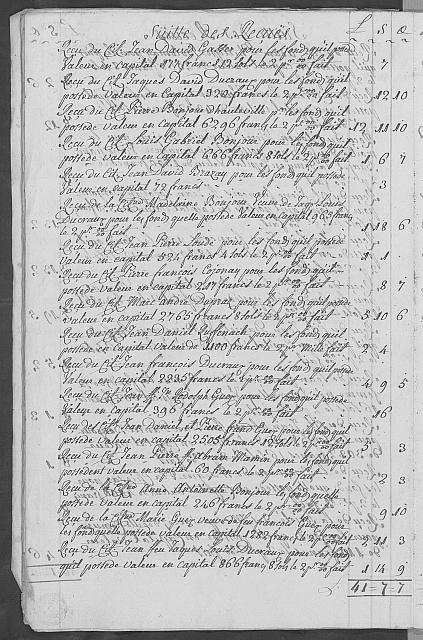 Suitte des Recües L S D
Recu du Cit. Jean David Gasser pour les fond qu'il pos
Valeur en Capital 177 francs 12 sols le 2 pr. ‰ fait 7
Recu du Cit. Jaques David Ducraux pour les fond qu'il
postede Valeur en Capital 322 francs le 2 pr. ‰ fait 12 10
Recu du Cit. Pierre Bonjour d'hauteville pr. les fond qu'il
postede Valeur en capital 6296 francs le 2 pr. ‰ fait 12 11 10
Recu du Cit. Louis Gabriel Bonjour pour les fond qu'il
postede Valeur en Capital 666 francs 8 sols le 2 pr. ‰ fait 1 6 7
Recu du Cit. Jean David Brazay pour les fond qu'il postede
Valeur en capital 72 francs 3
Recu de la Cit. Madelaine Bonjour Veuve de Jaqs. Louis
Ducraux pour les fond quelle postede Valeur en Capital 965 francs
le 2 pr. ‰ fait 1 18 6
Recu du Cit. Jean Pierre pour les fond qu'il postede
Valeur en capital 524 francs 4 sols le 2 pr. ‰ fait 1 1
Recu du Cit. Pierre francois Cojonay pour les fond qu'il
postede Valeur en Capital 217 francs le 2 pr. ‰ fait 8 7
Recu du Cit. Marc André Dupraz pour les fond qu'il postede
Valeur en Capital 2765 francs 8 sols le 2 pr. ‰ fait 5 10 6
Recu du Cit. Jean Daniel pour les fond qu'il
postede en Capital Valeur de 1100 francs le 2 pr. Mille fait 2 4
Recu du Cit. Jean françois Ducraux pour les fond qu'il postede
Valeur en capital 2235 francs le 2 pr. ‰ fait 4 9 5
Recu du Cit. Rodolph Guex pour les fond qu'il postede
Valeur en Capital 396 francs le 2 pr. ‰ fait 16
Recu des Cit. Jean daniel et Pierre frend Guex pour les fond qu'il
postede Valeur en capital 2505 francs 12 sols le 2 pr. ‰ fait 5 3
Recu du Cit. Jean Pierre Abram Monnin pour les fond qu'il
postedent Valeur en capital 60 francs le 2 pr. ‰ fait 2 3
Recu de la Cit. Anne Antoinette Bonjour les fond quelle
postede Valeur en capital 246 francs le 2 pr. ‰ fait 9 10
Recu de la Cit. Marie Guex Veuve de feu francois Guex pour
les fond quelle postede Valeur en Capital francs le 2 pr. ‰ fait 11 3
Recu du Cit. Jean feu Jaques Louis Ducraux pour les fond
qu'il postede Valeur en capital 866 francs 8 sols le 2 pr. ‰ fait 1 14 9
41 = 7 = 7